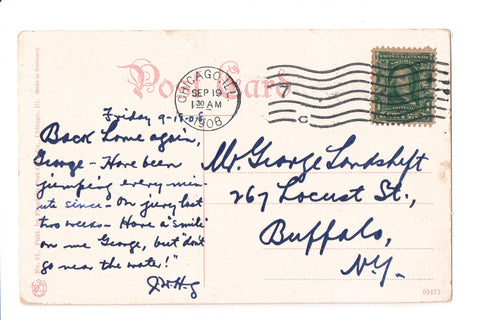 Post Card
CHICAGO, ILL.
SEP 19
1 30 AM
1908
C
Friday 9-18-08
Back home again,
George - Have been
jumping every min-
ute since - On jury last
two weeks - Have a "smile"
on me George, but "don't
go near the water!"
J.H.H-g
Mr. George Landsheft
267 Locust St.,
Buffalo,
N.Y.
Chicago, Ill. Made in Germany.
No. 81. Publ. by
95472